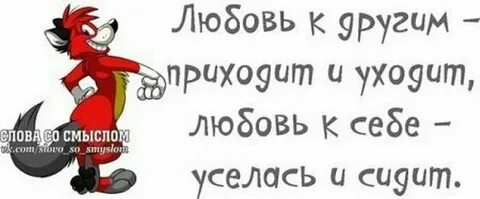 Любовь к другим –
приходит и уходит,
любовь к себе –
уселась и сидит.
СЛОВА СО СМЫСЛОМ
vk.com/slovo_so_smyslom